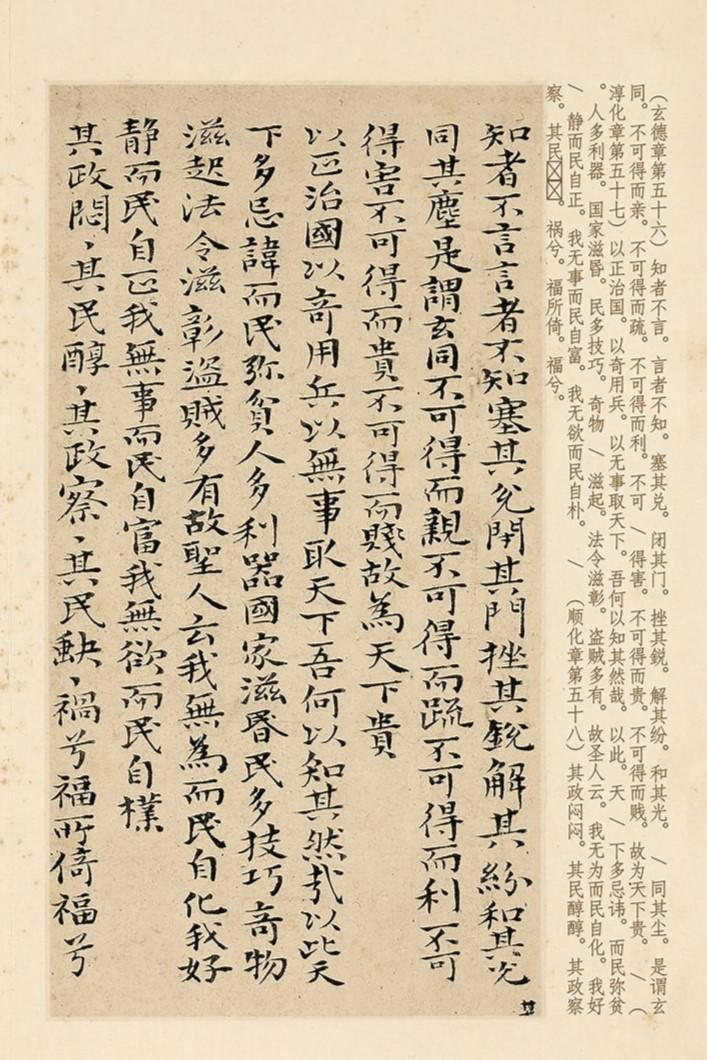 （玄德章第五十六）知者不言。言者不知。塞其兑。闭其门。挫其鋭。解其纷。和其光。 / 同其尘。是谓玄
同。不可得而亲。不可得而疏。不可得而利。不可 / 得害。不可得而贵。不可得而贱。故为天下贵。 / （
淳化章第五十七）以正治国。以奇用兵。以无事取天下。吾何以知其然哉。以此。天 / 下多忌讳。而民弥贫
。人多利器。国家滋昏。民多技巧。奇物 / 滋起。法令滋彰。盗贼多有。故圣人云。我无为而民自化。我好
/ 静而民自正。我无事而民自富。我无欲而民自朴。 / （顺化章第五十八）其政闷闷。其民醇醇。其政察
察。其民☒☒。祸兮。福所倚。福兮。
知者不言言者不知塞其兊閇其門挫其銳解其紛和其光
同其塵是謂玄同不可得而親不可得而疏不可得而利不可
得害不可得而貴不可得而賤故為天下貴
以正治國以奇用兵以無事取天下吾何以知其然哉以此天
下多忌諱而民弥貧人多利器國家滋昬民多技巧奇物
滋起法令滋彰盜賊多有故聖人云我無為而民自化我好
静而民自正我無事而民自富我無欲而民自樸
其政悶〻其民醇〻其政察〻其民缺〻禍兮福所倚福兮